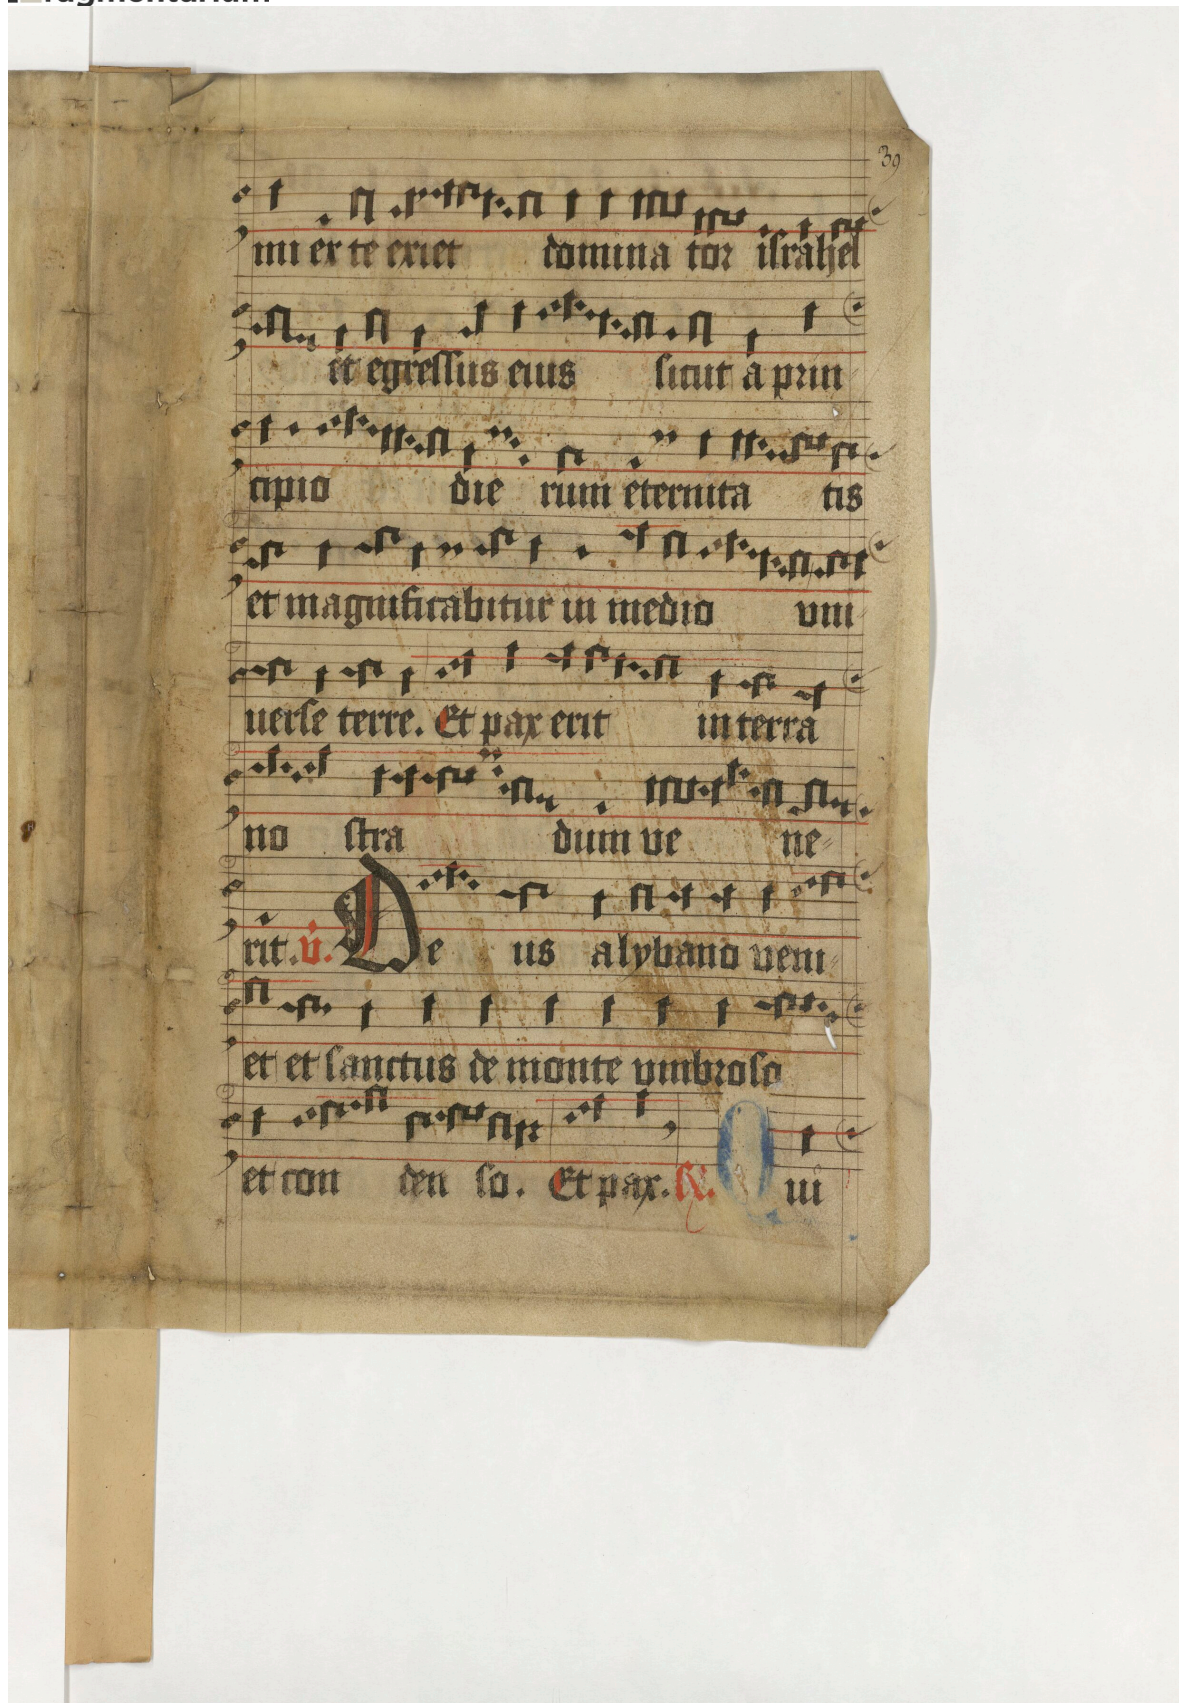 30
mi ex te exiet domina tor israhel
et egressus eius sicut a prin
cipio die rum eternita tis
et magnificabitur in medio vni
uerse terre. Et pax erit in terra
no stra dum ve ne
rit. v. De us a lybano veni
et et sanctus de monte vmbroso
et con den so. Et pax. R. Qui